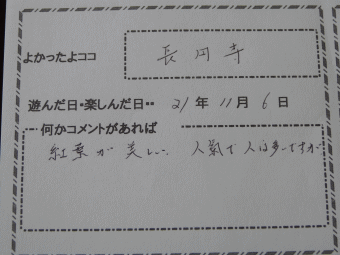 よかったよココ 長円寺
遊んだ日・楽しんだ日・・ 21年11月6日
何かコメントがあれば
紅葉が美しい、人気で人は多いですが